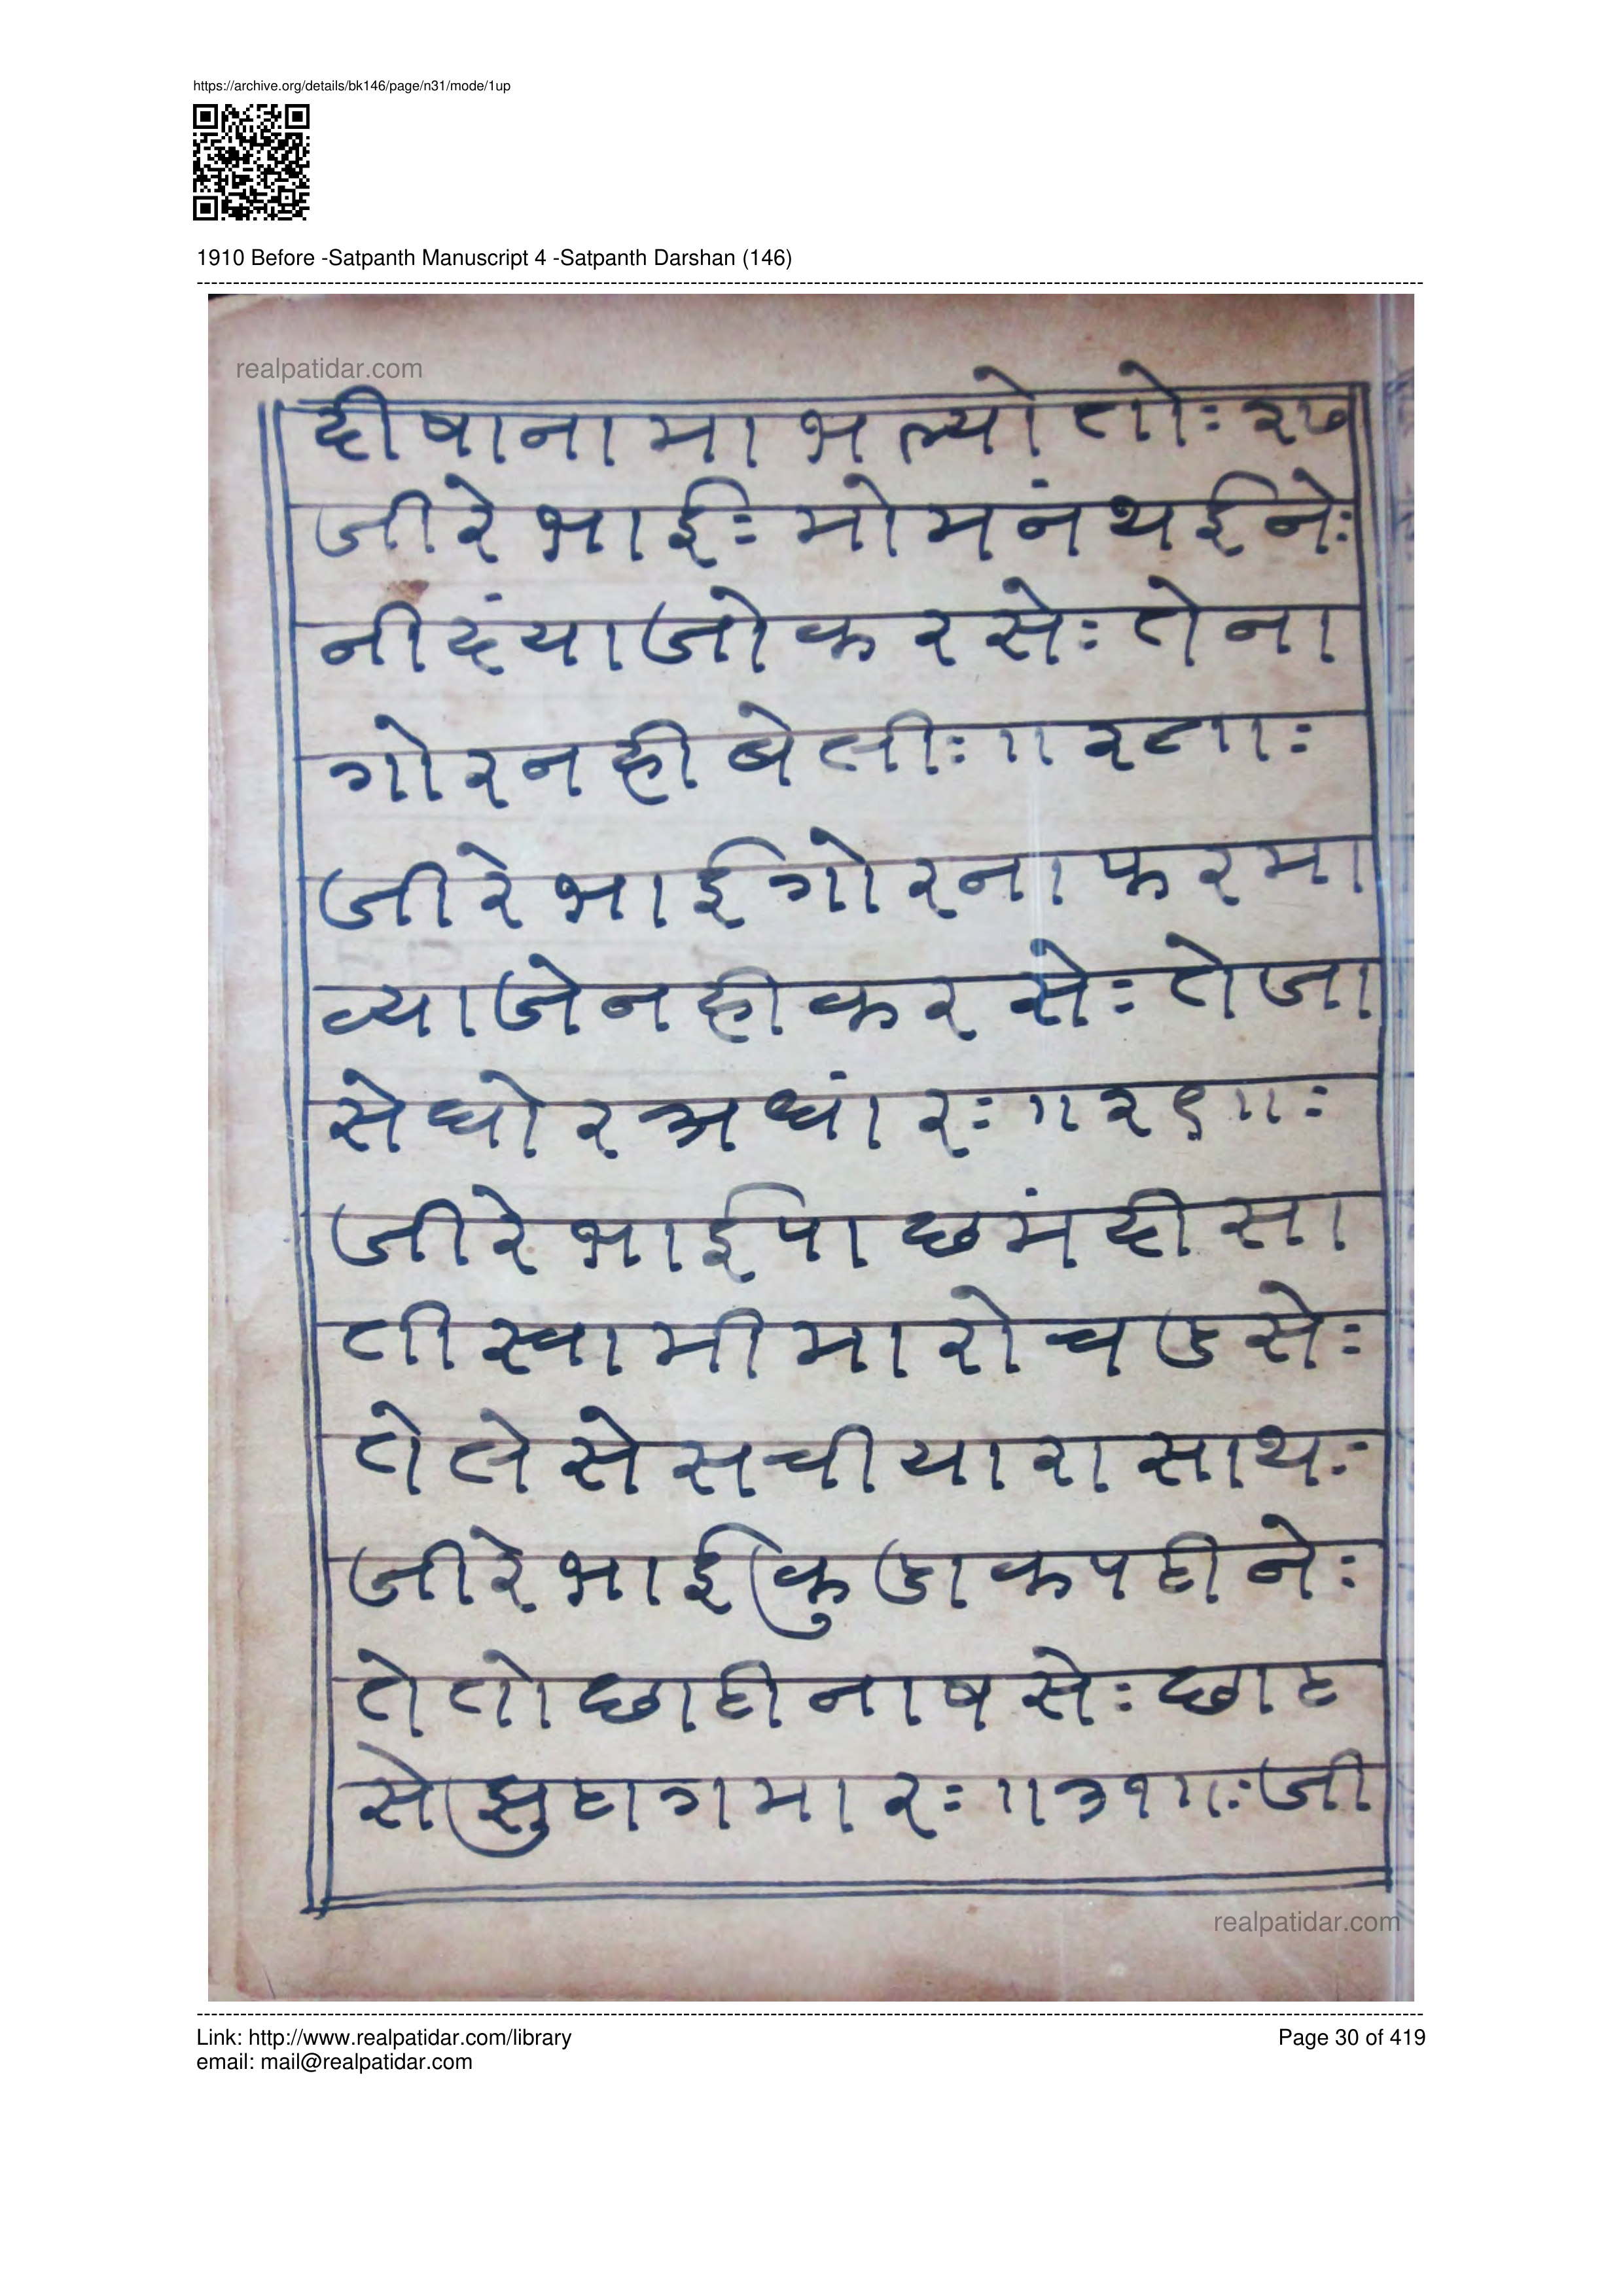 https://archive.org/details/bk146/page/n31/mode/1up
1910 Before -Satpanth Manuscript 4 -Satpanth Darshan (146)
realpatidar.com
दीषानामाभल्योतोः२७
जीरेभाईः मोमनंथईनेः
नीदंयाजोकरसेः तेना
गोरनहीबेलीः॥२८॥ः
जीरेभाईगोरनाफरमा
व्याजेनहीकरसेः तेजा
सेघोरअधांरः॥२९॥ः
जीरेभाईपाछमंदीसा
तीस्वामीमारोचडसेः
तेलेसेसचीयारासाथः
जीरेभाईकुडाकपटीनेः
तेतोछाटीनाषसेः छाट
सेझुठागमारः॥३१॥ः जी
realpatidar.com
Link: http://www.realpatidar.com/library
Page 30 of 419
email: mail@realpatidar.com